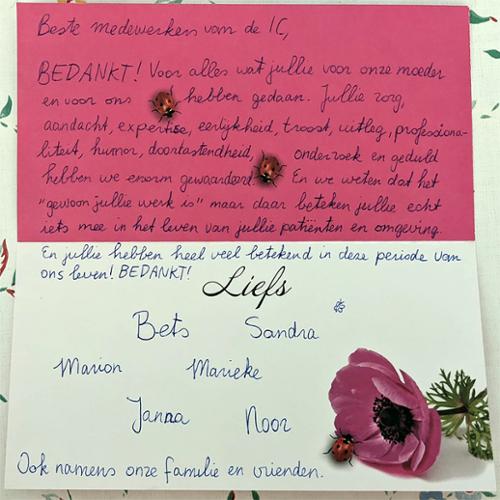 Beste medewerkers van de IC,
BEDANKT! Voor alles wat jullie voor onze moeder
en voor ons hebben gedaan. Jullie zorg,
aandacht, expertise, eerlijkheid, troost, uitleg, professiona-
liteit, humor, doortastendheid, onderzoek en geduld
hebben we enorm gewaardeerd. En we weten dat het
"gewoon jullie werk is" maar daar beteken jullie echt
iets mee in het leven van jullie patiënten en omgeving.
En jullie hebben heel veel betekend in deze periode van
ons leven! BEDANKT!
Liefs
Bets Sandra
Marion Marieke
Janna Noor
Ook namens onze familie en vrienden.